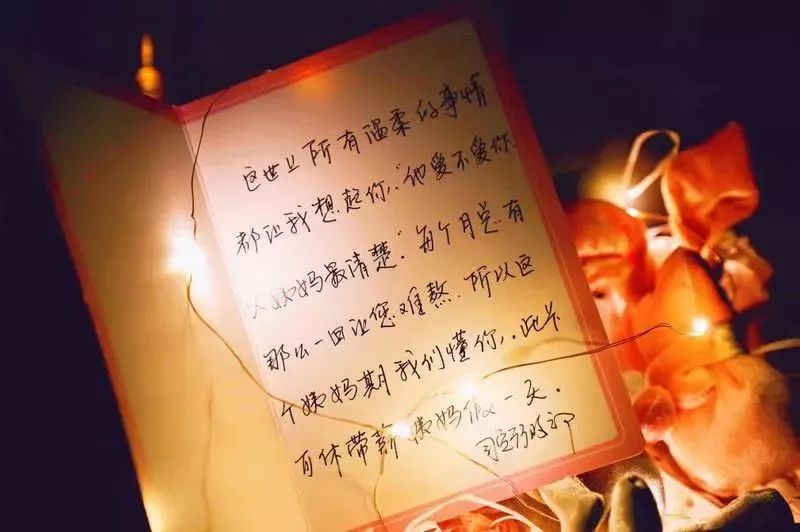 这世上所有温柔的事情
都让我想起你,“他爱不爱你
大姨妈最清楚”每个月总有
那么一回让您难熬.所以这
个姨妈期我们懂你,.此卡
可休带薪姨妈假一天.